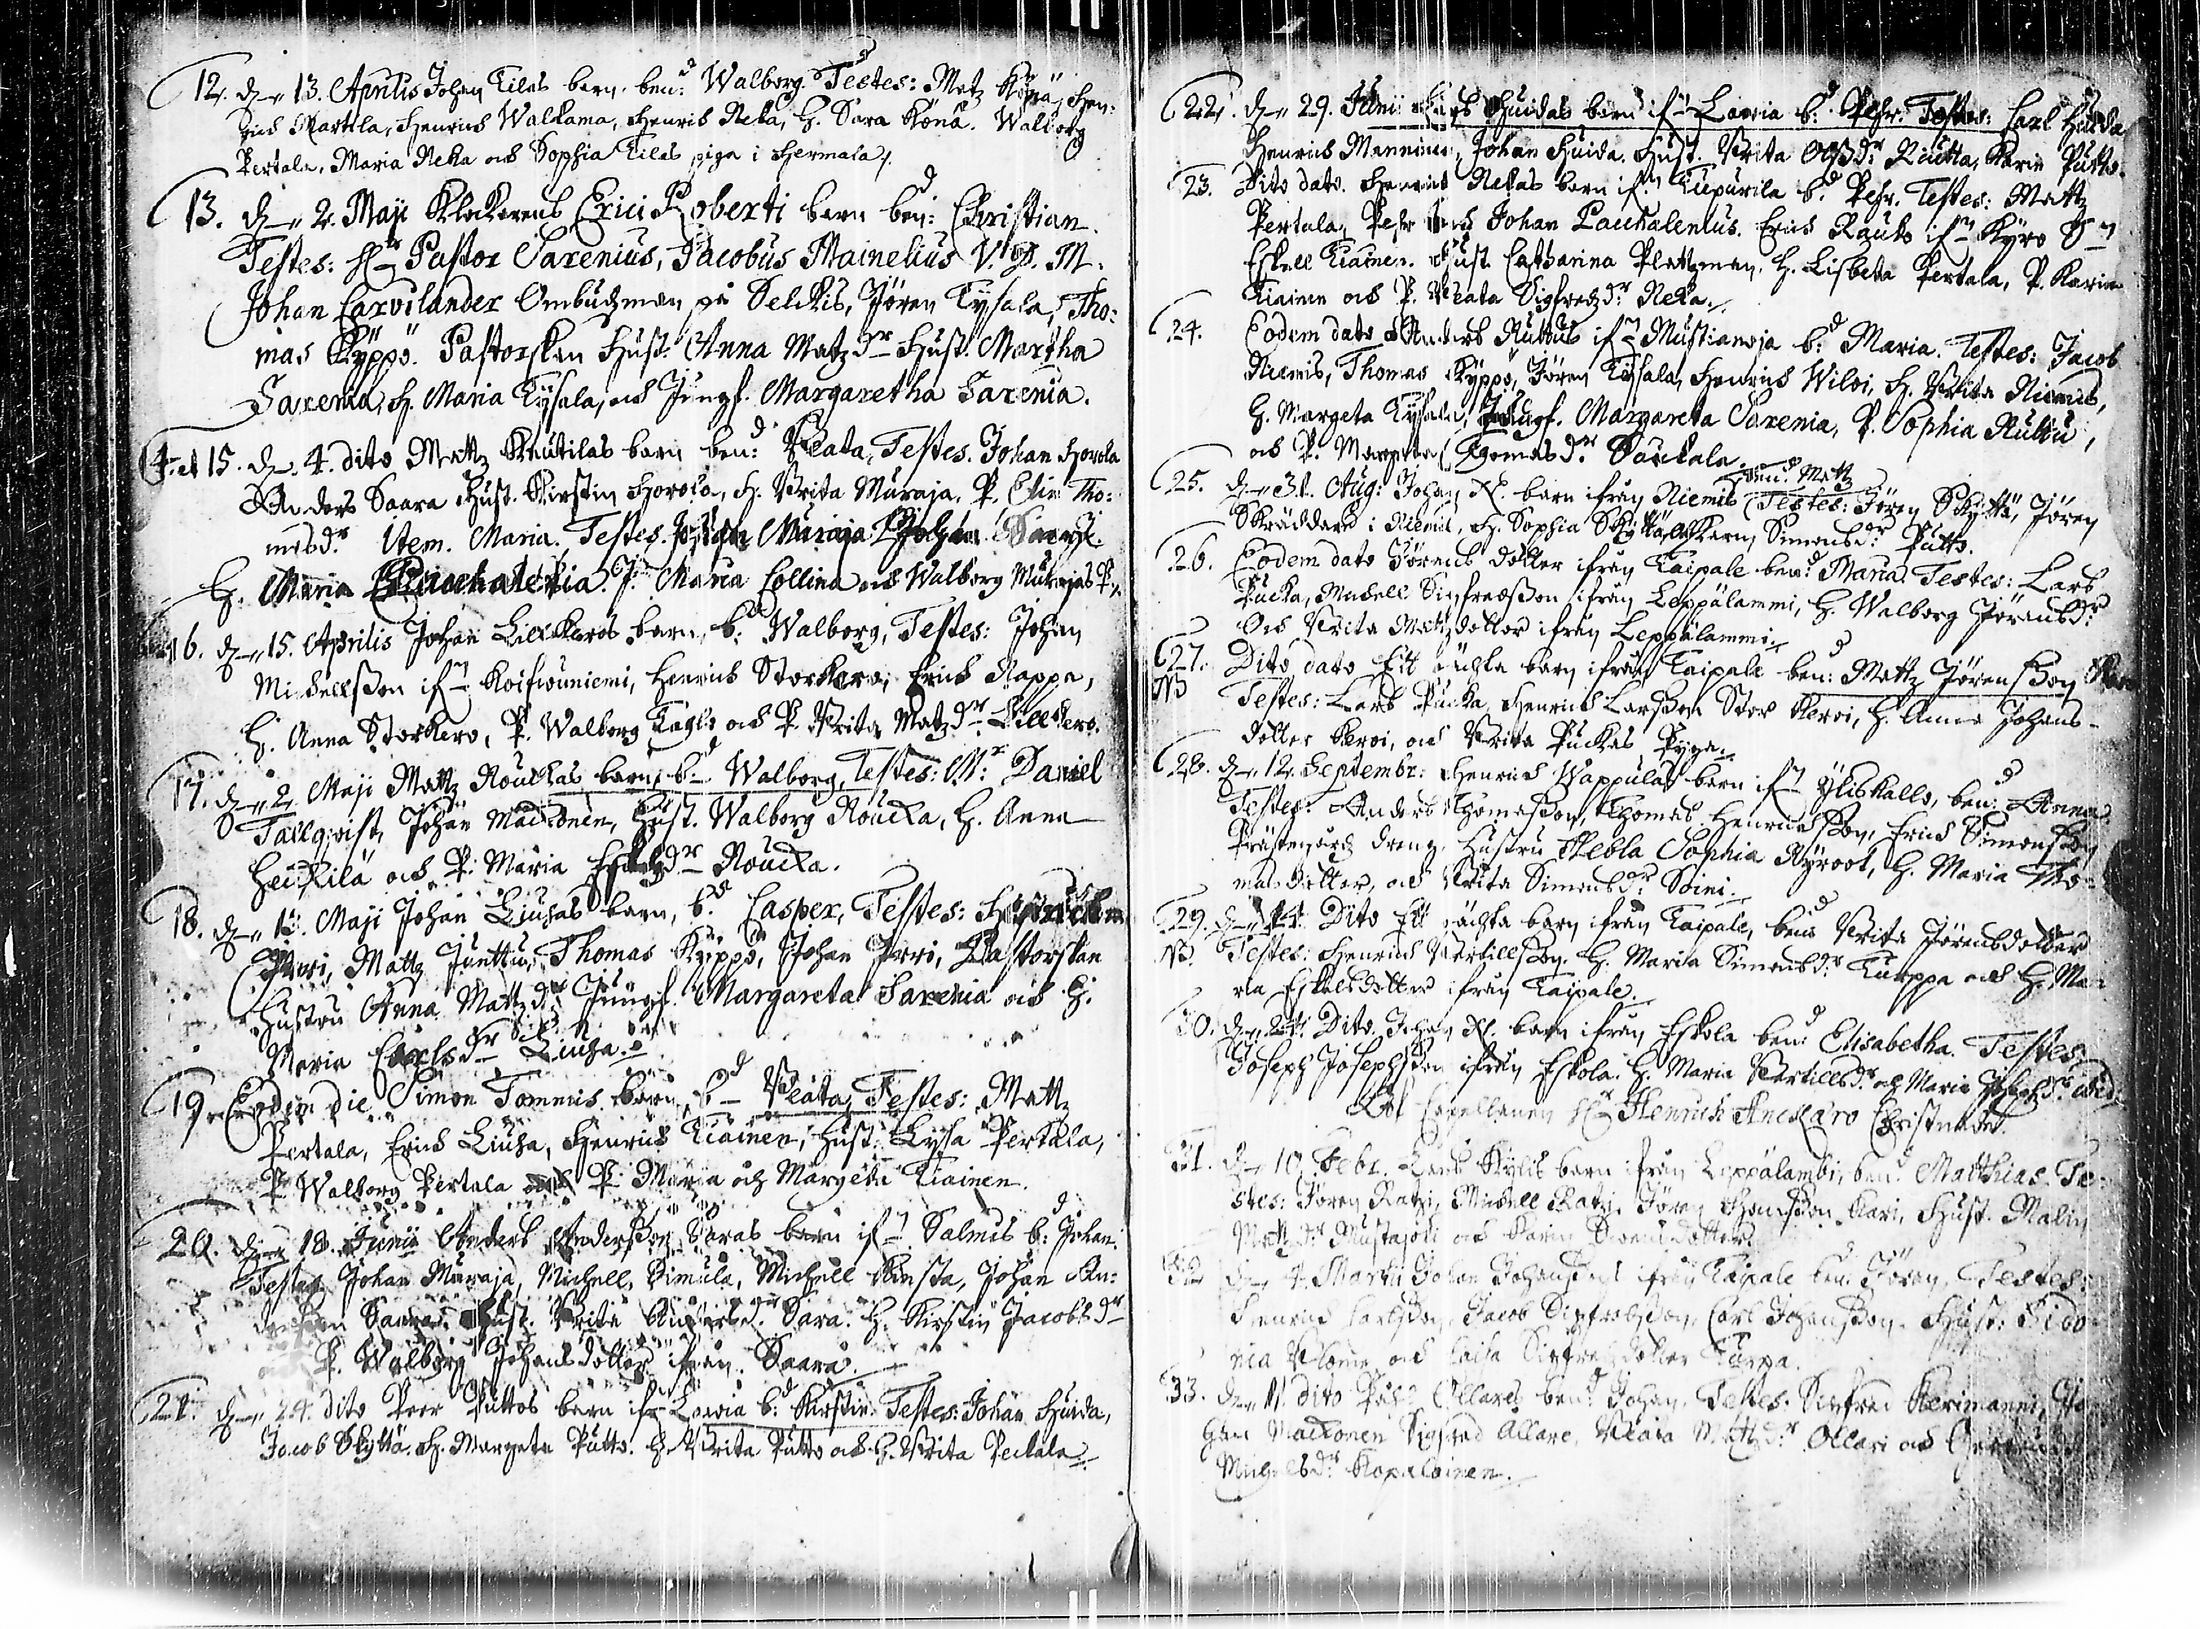 12. d. 13. Aprilis Johan Kilas barn. ben:d Walborg. Testes: Matz Könä, Hen:
rich Markela, Henrich Walkama, Henrich Neka, H. Sara Könä. Walborg
Pertala, Maria Neka och Sophia Kilas piga i Hermala.
13. d. 2. Maji Klockarens Erici Roberti barn ben:d Christian.
Testes: Hr Pastor Sarenius, Jacobus Mainelius V.D.M.
Johan Carvilander Ombudzman på Selckis, Jören Kysala, Tho:
mas Kyppö. Pastorskan Hust: Anna Matzdr Hust. Martha
Sarenia, H. Maria Kysala, och Jungf. Margaretha Sarenia.
14. et 15. d. 4. dito Mattz Knutilas barn ben:d Beata, Testes. Johan Horola
Anders Saara Hust. Kirstin Horola, H. Brita Muraja, P. Elin Tho:
masdr. Item. Maria. Testes. Johan Muraja
H. Maria J. Maria Collina och Walborg Murajas P.
16. d. 15. Aprilis Johan Lillkeros barn, b:d Walborg, Testes: Johan
Michellsson ifn Koifwuniemi, Henrich Storkero, Erich Kappa,
H. Anna Storkero, P. Walborg Kaglo och P. Brita Matzdr Lillkero.
17. d. 2. Maji Mattz Rouckas barn, bd Walborg, Testes: Mr Daniel
Tallqvist, Johan Mackonen, Hust. Walborg Roucka, H. Anna
Heickilä och P. Maria Eskelsdr Roucka.
18. d. Maji Johan Liuhas barn, b.d Casper, Testes:
Mattz Junttu, Thomas Kyppö, Johan Parri, Pastorskan
Hustru Anna Mattzdr Jungf. Margareta Sarenia och H.
Maria dr Liuha.
19. Eodem die Simon Tommis barn, bd Beata, Testes: Mattz
Pertala, Erich Liuha, Henrich Kiainen, Hust: Lysa Pertala,
P Walborg Pertala och P. Maria och Margeta Kiainen.
20. d. 18. Junii Anders Andersson Saras barn ifn Salmis b:d Johan.
Testes Johan Muraja, Michell Simula, Michell Knsta, Johan An:
dersson Saara. Hust. Brita Andersdr Sara. H. Kirstin Jacobsdr
P. Walborg Johansdotter ifrån Saara.
21. d. 24. dito Peer Puttos barn ifn Lawia b:d Kirstin. Testes: Johan Huida,
Jacob Skytta. H. Margeta Putto. H. Brita Putto och H. Brita Peltala.
22. d. 29. Junii Lars Huidas barn ifn Lawia b:d Pehr. Testes: Carl Huida
Henrich Manninen, Johan Huida. Hust. Brita Riutta, Karin Putto.
23. Dito dato. Henrich Nekas barn ifn Kupurila b.d Pehr. Testes: Mattz
Pertala, Pehr och Johan Paukalenius. Erich Rauko ifn Kyro Sn
Eskell Kiainen. Hust. Catharina Plattzman, H. Lisbeta Pertala, P. Karin
Kiainen och P. Beata Sigfredzdr Neka.
24. Eodem dato Anders Ruttus ifn Mustianoja b:d Maria. Testes: Jacob
Niemis, Thomas Kyppö, Jören Kysala, Henrich Wiloi, H. Brita Niemis,
H. Margeta Kysala, Jungf. Margareta Sarenia, P. Sophia Ruttu,
och P. Margeta Thomasdr Saukala.
ben:d Mattz
25. d. 31. Aug: Johan barn ifrån Niemis Testes: Jören Skyttä, Jören
Skräddare i Niemis, H. Sophia Skyttä, Karin Simonsdr Putto.
26. Eodem dato Jörens dotter ifrån Kaipale ben:d Maria. Testes: Lars
Pucka, Michell Sigfredsson ifrån Leppälammi, H. Walborg Jörensdr
Och Brita Matzdotter ifrån Leppälammi.
27. Dito dato Ett oächta barn ifrån Kaipale ben:d Mattz Jörensson
NB Testes: Lars Pucka, Henrich Larsson Stor Keroi, H. Anna Johans-
dotter Keroi, och Brita Puckas Pyga.
28. d. 12. Septembr: Henrich Wappulas barn ifn Yliskallo, ben:d Anna
Testes: Anders Thomasson, Thomas Henrichsson, Erich Simonsson
Prästegårdz dreng. Hustru Hebla Sophia Kyroot, H. Maria Tho:
masdotter, och Brita Simonsdr Soini.
29. d. 14. Dito Ett oächta barn ifrån Kaipale, ben:d Brita Jörensdotter
NB. Testes: Henrich Bertillsson. H. Maria Simonsdr Kurppa och H. Ma-
ria Eskelsdotter ifrån Kaipale.
30. d. 24. Dito. Johan barn ifrån Eskola ben:d Elisabetha. Testes
Joseph Josephsson ifrån Eskola. H. Maria Bertillsdr och Maria
Af Capellanen Hr Henrich Anckaro Christnade.
31. d. 10 Febr. Lars Kylis barn ifrån Leppälambi, ben:d Matthias. Te-
stes: Jören Ratzi, Michell Ratzi, Jören Hansson Kari, Hust. Malin
Mattzdr Mustajoki och Karin dotter.
32 d. 4. Martii Johan Johanssons ifrån Kaipale ben:d Jören. Testes:
Henrich Carlsson, Jacob Sigfredsson, Carl Johansson. Hust: Sido-
nia Blome och Caisa Sigfredzdotter Kurpa.
33. d. 11. dito Ollares ben:d Johan. Testes. Sigfred Kerimanni, Jo-
han Mackonen Sigfred Allare, Beata Mattzdr Ollari och
Michelsdr Kopaloinen.